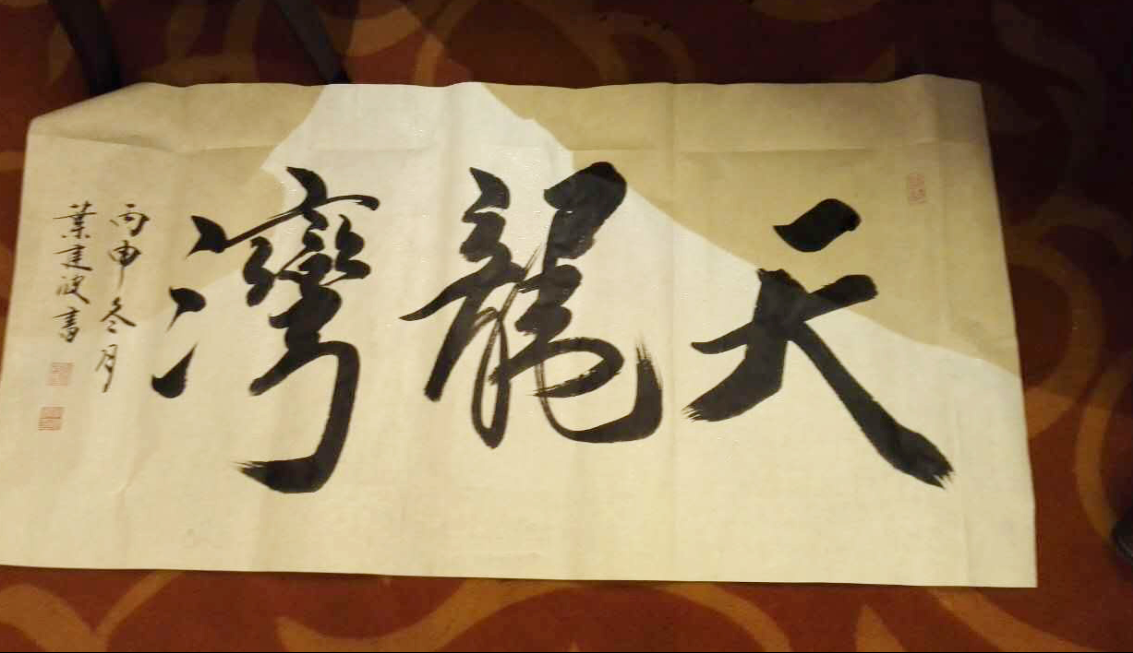 天龍灣
丙申冬月
葉建波書